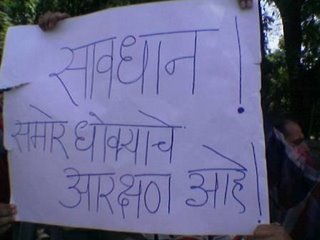 सावधान !
समोर धोक्याचे
आरक्षण आहे !